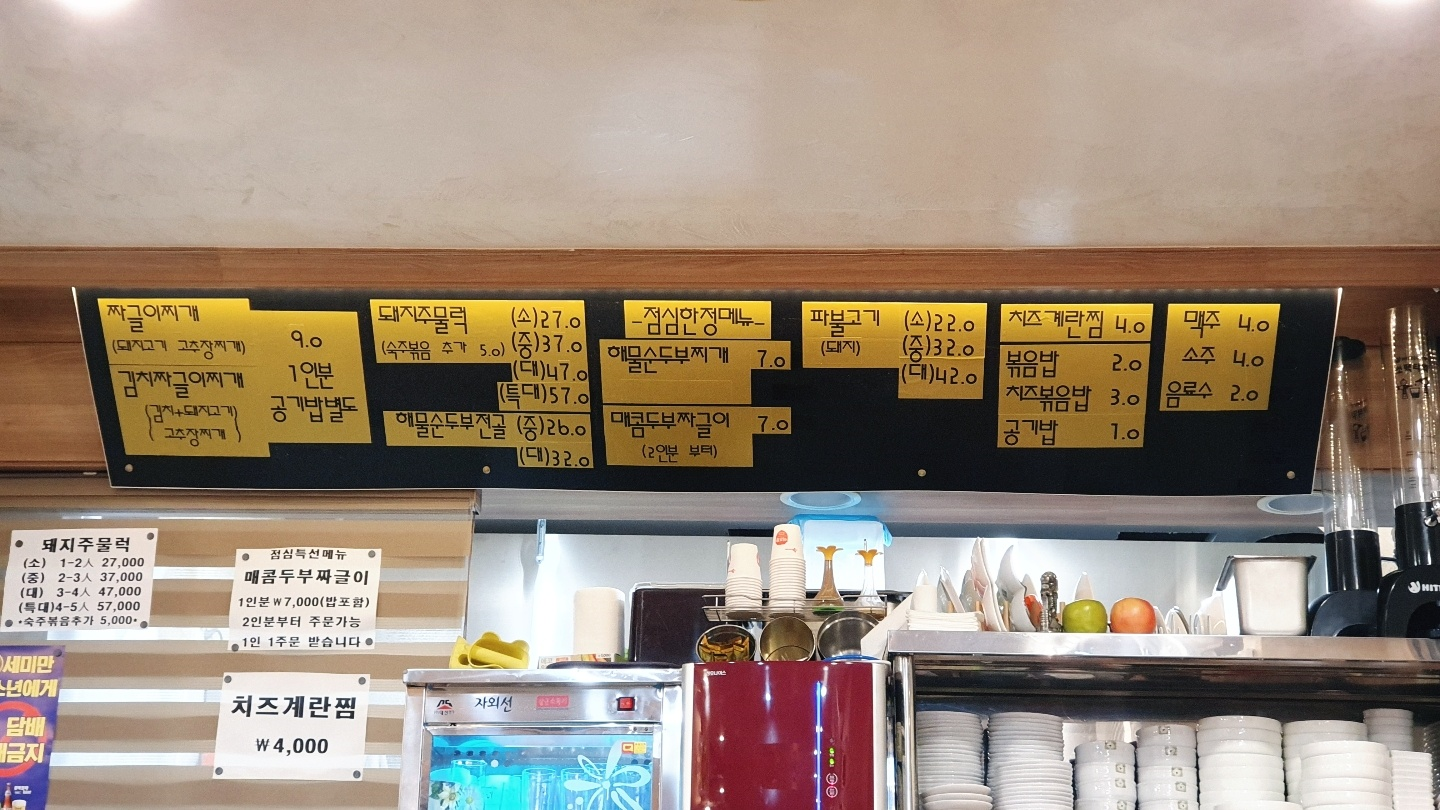 짜글이찌개
(돼지고기 고추장찌개)
김치짜글이찌개
(김치+돼지고기
고추장찌개)
9.0
1인분
공기밥별도
돼지주물럭 (소)27.0
(숙주볶음 추가 5.0) (중)37.0
(대)47.0
(특대)57.0
해물순두부전골 (중)26.0
(대)32.0
-점심한정메뉴-
해물순두부찌개 7.0
매콤두부짜글이 7.0
(2인분 부터)
파불고기 (소)22.0
(돼지) (중)32.0
(대)42.0
치즈계란찜 4.0
볶음밥 2.0
치즈볶음밥 3.0
공기밥 1.0
맥주 4.0
소주 4.0
음료수 2.0
돼지주물럭
(소) 1-2人 27,000
(중) 2-3人 37,000
(대) 3-4人 47,000
(특대)4-5人 57,000
•숙주볶음추가 5,000•
점심특선메뉴
매콤두부짜글이
1인분₩7,000(밥포함)
2인분부터 주문가능
1인 1주문 받습니다
치즈계란찜
₩4,000
세미만
소년에게
담배
매금지
자외선